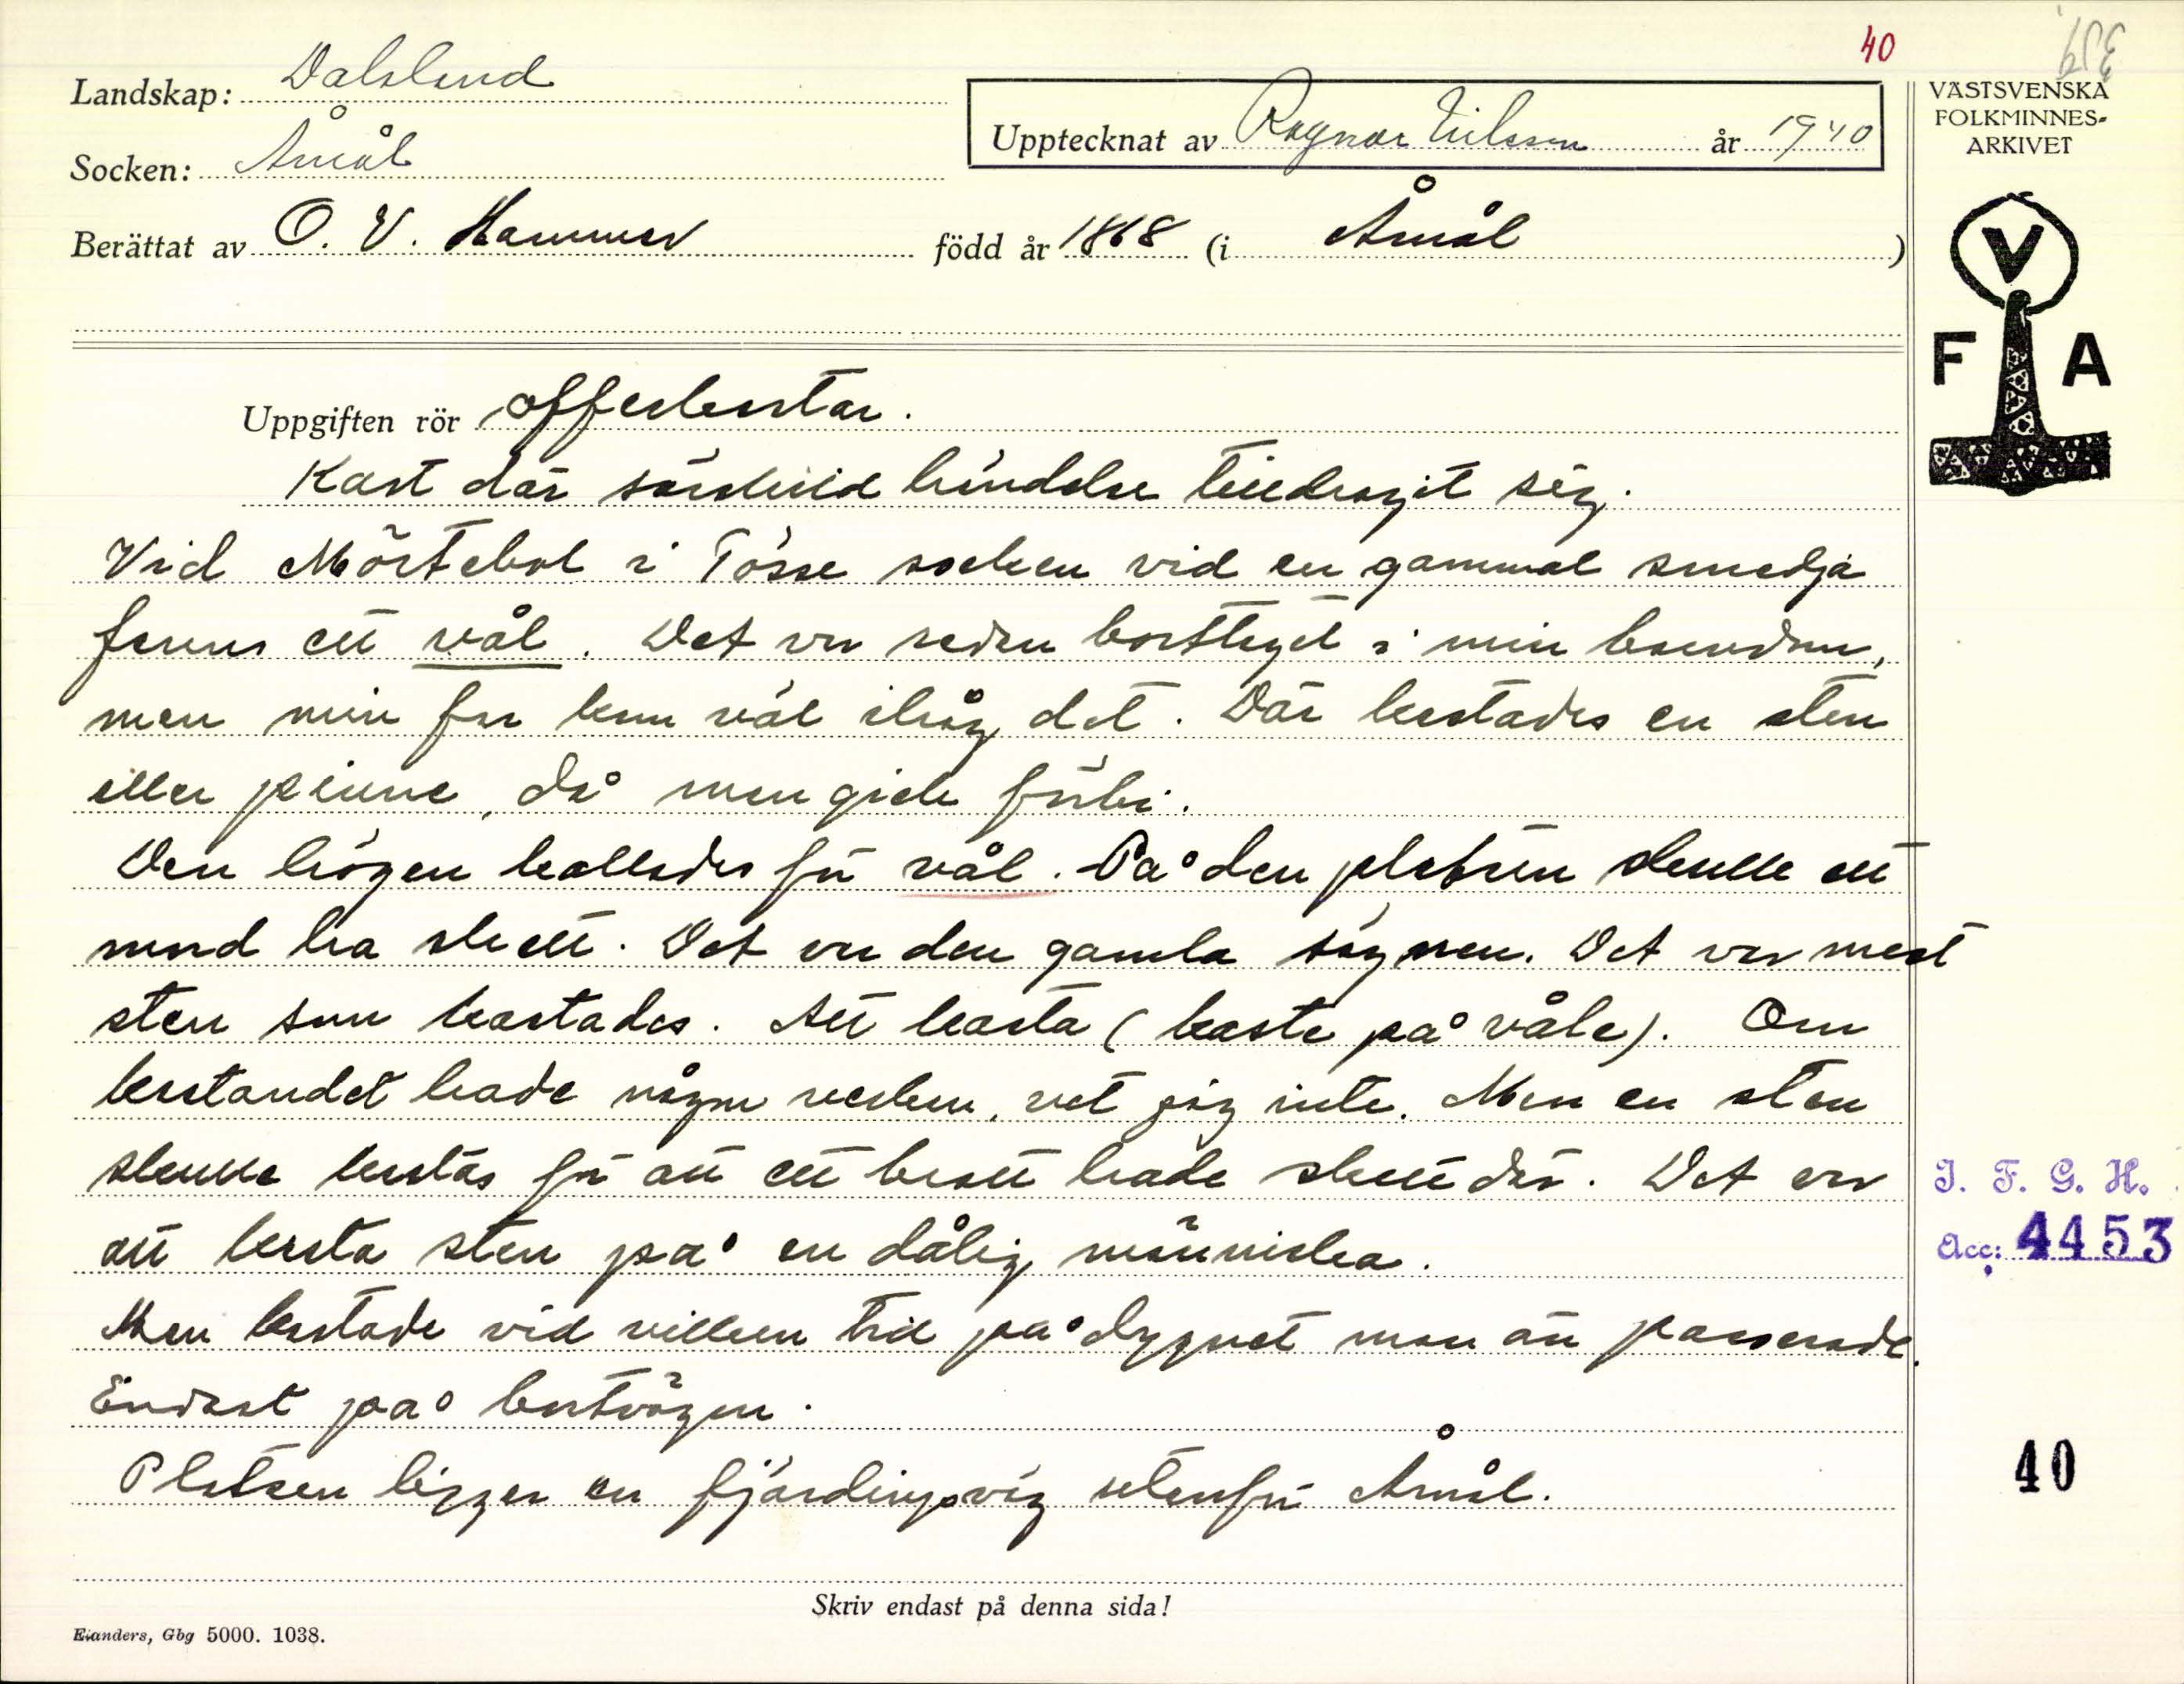 40
Landskap: Dalsland
Socken: Åmål
Upptecknat av Ragnar Nilsson år 1940
Berättat av O. V. Hammar född år 1868 (i Åmål)
VÄSTSVENSKA
FOLKMINNES-
ARKIVET
V
F A
Uppgiften rör offerkastar.
Kast där särskild händelse tilldragit sig.
Vid Mörtebol i Tösse socken vid en gammal smedja
fanns ett vål. Det var redan borttaget i min barndom,
men min far kom väl ihåg det. Där kastades en sten
eller pinne, då man gick förbi.
Den högen kallades för vål. På den platsen skulle ett
mord ha skett. Det var den gamla sägnen. Det var mest
sten som kastades. Att kasta (kaste på våle). Om
kastandet hade någon verkan, vet jag inte. Men en sten
skulle kastas för att ett brott hade skett där. Det var
att kasta sten på en dålig människa.
Man kastade vid vilken tid på dygnet man än passerade.
Endast på bortvägen.
Platsen ligger en fjärdingsväg utanför Åmål.
I. F. G. H.
Acc: 4453
40
Skriv endast på denna sida!
Elanders, Gbg 5000. 1038.